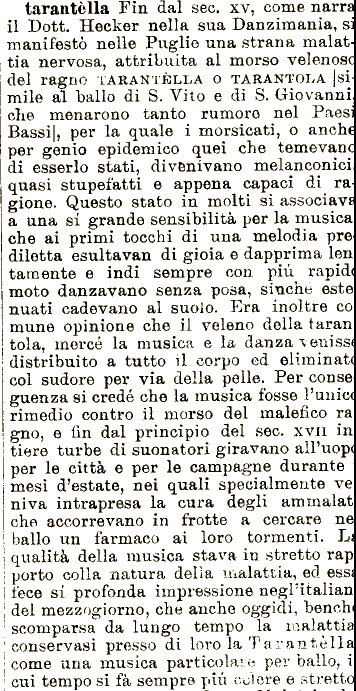 tarantèlla Fin dal sec. xv, come narra
il Dott. Hecker nella sua Danzimania, si
manifestò nelle Puglio una strana malat-
tia nervosa, attribuita al morso velenoso
del ragno TARANTÈLLA O TARANTOLA |si-
mile al ballo di S. Vito e di S. Giovanni,
che menarono tanto rumore nel Paesi
Bassi|, per la quale i morsicati, o anche
per genio epidemico quei che temevano
di esserlo stati, divènivano melanconici,
quasi stupefatti e appena capaci di ra-
gione. Questo stato in molti si associava
a una sì grande sensibilità per la musica,
che ai primi tocchi di una melodia pre-
diletta esultavan di gioia e dapprima len
tamente e indi sempre con piú rapido
moto danzavano senza posa, sinche este
nuati cadevano al suolo. Era inoltre co
mune opinione che il veleno della taran
tola, mercé la musica e la danza venisse
distribuito a tutto il corpo ed eliminato
col sudore per via della pelle. Per conse
guenza si credé che la musica fosse l'unico
rimedio contro il morso del malefico ra
gno, e fin dal principio del sec. XVII in
tiere turbe di suonatori giravano all'uopo
per le città e per le campagne durante
mesi d'estate, nei quali specialmente ve
niva intrapresa la cura degli ammalat
che accorrevano in frotte a cercare ne
ballo un farmaco ai loro tormenti. La
qualità della musica stava in stretto rap
porto colla natura della malattia, ed ess
fece si profonda impressione negl'italian
del mezzogiorno, che anche oggidi, benchè
scomparsa da lungo tempo la malattia
conservasi presso di loro la Tarantèlla
come una musica particolare per ballo, i
cui tempo si fà sempre piú celere e stretto